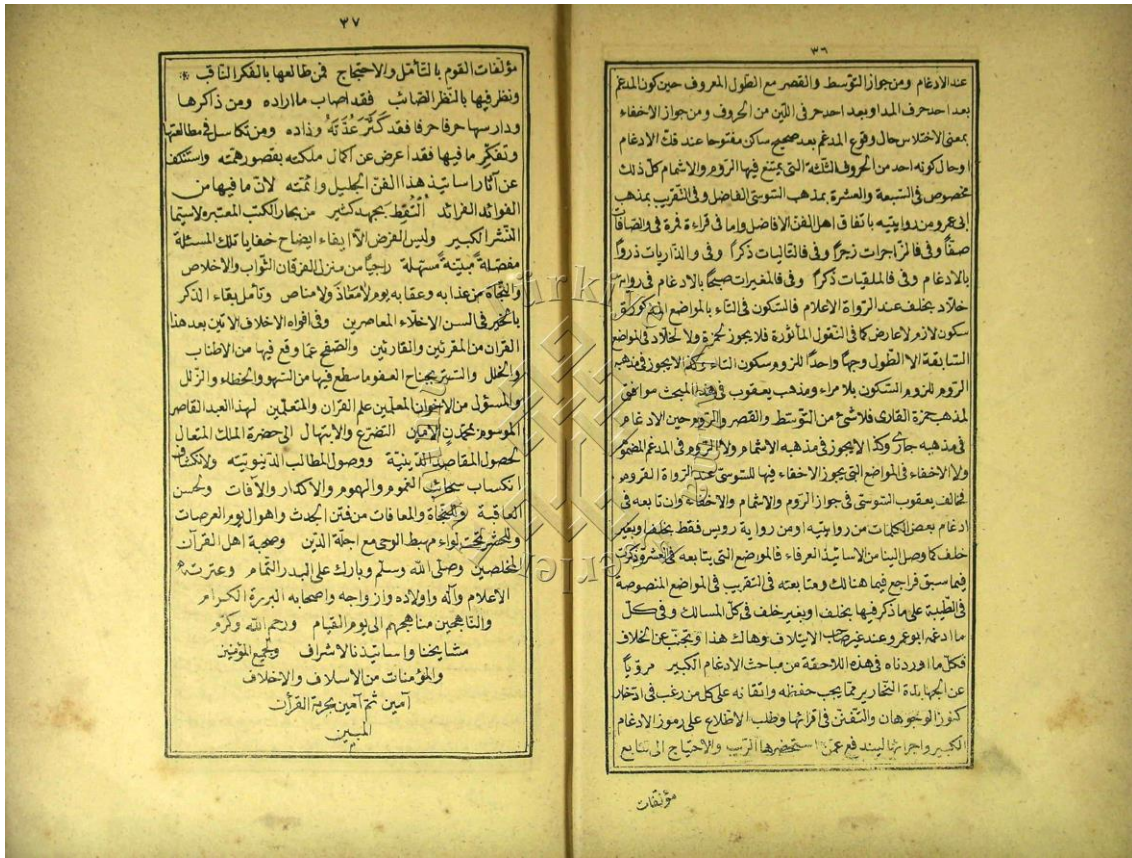 ٣٦
عند الادغام ومن جواز التوسط والقصر مع الطول المعروف حين كون المدغم
بعد احد حرف المد او بعد احد حرفى اللين من الحروف ومن جواز الاخفاء
بمعنى الاختلاس حال وقوع المدغم بعد صحيح ساكن مفتوحا عند فك الادغام
او حال كونه احد من الحروف الثلثة التى يمتنع فيها الروم والاشمام كل ذلك
مخصوص فى السبعة والعشرة بمذهب السوسى الفاضل وفى التقريب بمذهب
ابى عمرو من روايتيه باتفاق اهل الفن الافاضل واما فى قراءة حمزة فى والصافات
صفاً وفى فالزاجرات زجراً وفى فالتاليات ذكراً وفى والذاريات ذرواً
بالادغام وفى فالملقيات ذكراً وفى فالمغيرات صبحاً بالادغام فى رواية
خلاد بخلف عند الرواة الاعلام فالسكون فى التاء بالمواضع المذكورة
سكون لازم لا عارض كما فى النقول المأثورة فلا يجوز لحمزة ولا لخلاد فى المواضع
السابقة الا الطول وجهاً واحداً للزوم سكون التاء وكذا لا يجوز فى مذهبه
الروم للزوم السكون بلا مراء ومذهب يعقوب فى هذا المبحث موافق
لمذهب حمزة القارى فلا شئ من التوسط والقصر والروم حين الادغام
فى مذهبه جارى وكذا لا يجوز فى مذهبه الاشمام ولا الروم فى المدغم المضموم
ولا الاخفاء فى المواضع التى يجوز الاخفاء فيها للسوسى عند الرواة القروم
فخالف يعقوب السوسى فى جواز الروم والاشمام والاخفاء وان تابعه فى
ادغام بعض الكلمات من روايتيه او من رواية رويس فقط بخلف او بغير
خلف كما وصل الينا من الاساتيذ العرفاء فالمواضع التى يتابعه فى العشر ذكرت
فيما سبق فراجع فيما هنالك ومتابعته فى التقريب فى المواضع المنصوصة
فى الطيبة على ما ذكر فيها بخلف او بغير خلف فى كل المسالك وفى كل
ما ادغمه ابو عمرو وعند غير صاحب الايتلاف وهاك هذا وتجنب عن الخلاف
فكل ما اوردناه فى هذه اللاحقة من مباحث الادغام الكبير مروياً
عن الجهابذة النحارير مما يجب حفظه واتقانه على كل من رغب فى ادخار
كنوز الوجوهات والتفنن فى قرائتها وطلب الاطلاع على رموز الادغام
الكبير واجرائها ليندفع عمن استحضرها الريب والاحتياج الى تتابع
مؤلفات
٣٧
مؤلفات القوم بالتأمل والاحتجاج فمن طالعها بالفكر الثاقب *
ونظر فيها بالنظر الصائب فقد اصاب ما اراده ومن ذاكرها
ودارسها حرفا حرفا فقد كَثَّرَ عُدَّتَهُ وزاده ومن تكاسل فى مطالعتها
وتفكر ما فيها فقد اعرض عن اكمال ملكته بقصور همته واستنكف
عن آثار اساتيذ هذا الفن الجليل وائمته لان ما فيها من
الفوائد الفرائد اُلْتُقِطَ بجهد كثير من بحار الكتب المعتبره لاسيما
النشر الكبير وليس الغرض الا ايفاء ايضاح خفايا تلك المسئلة
مفصلةً مبينةً مسهلة راجياً من منزل الفرقان الثواب والاخلاص
والنجاة من عذابه وعقابه يوم لا معاذ ولا مناص وتأمل بقاء الذكر
بالخير فى السن الاخلاء المعاصرين وفى افواه الاخلاف الاتين بعد هذا
القران من المقرئين والقارئين والصفح عما وقع فيها من الاطناب
والخلل والستر بجناح العفو ما سطع فيها من السهو والخطاء والزلل
والمسؤل من الاخوان المعلمين علم القران والمتعلمين لهذا العبد القاصر
الموسوم بمحمدٍ الامين التضرع والابتهال الى حضرة الملك المتعال
لحصول المقاصد الدينية ووصول المطالب الدنيوية ولانكشاف
انكساب سحاب الغموم والهموم والاكدار والآفات ولحسن
العاقبة والنجاة والمعافات من فتن الجدث واهوال يوم العرصات
وللحشر تحت لواء مهبط الوحى مع اجلة الدين وصحبة اهل القرآن
المخلصين وصلى الله وسلم وبارك على البدر التمام وعترته
الاعلام وآله واولاده وازواجه واصحابه البررة الكرام
والناهجين مناهجهم الى يوم القيام ورحم الله وكرم
مشايخنا واساتيذنا الاشراف ولجميع المؤمنين
والمؤمنات من الاسلاف والاخلاف
آمين ثم آمين بحرمة القرآن
المبين
م